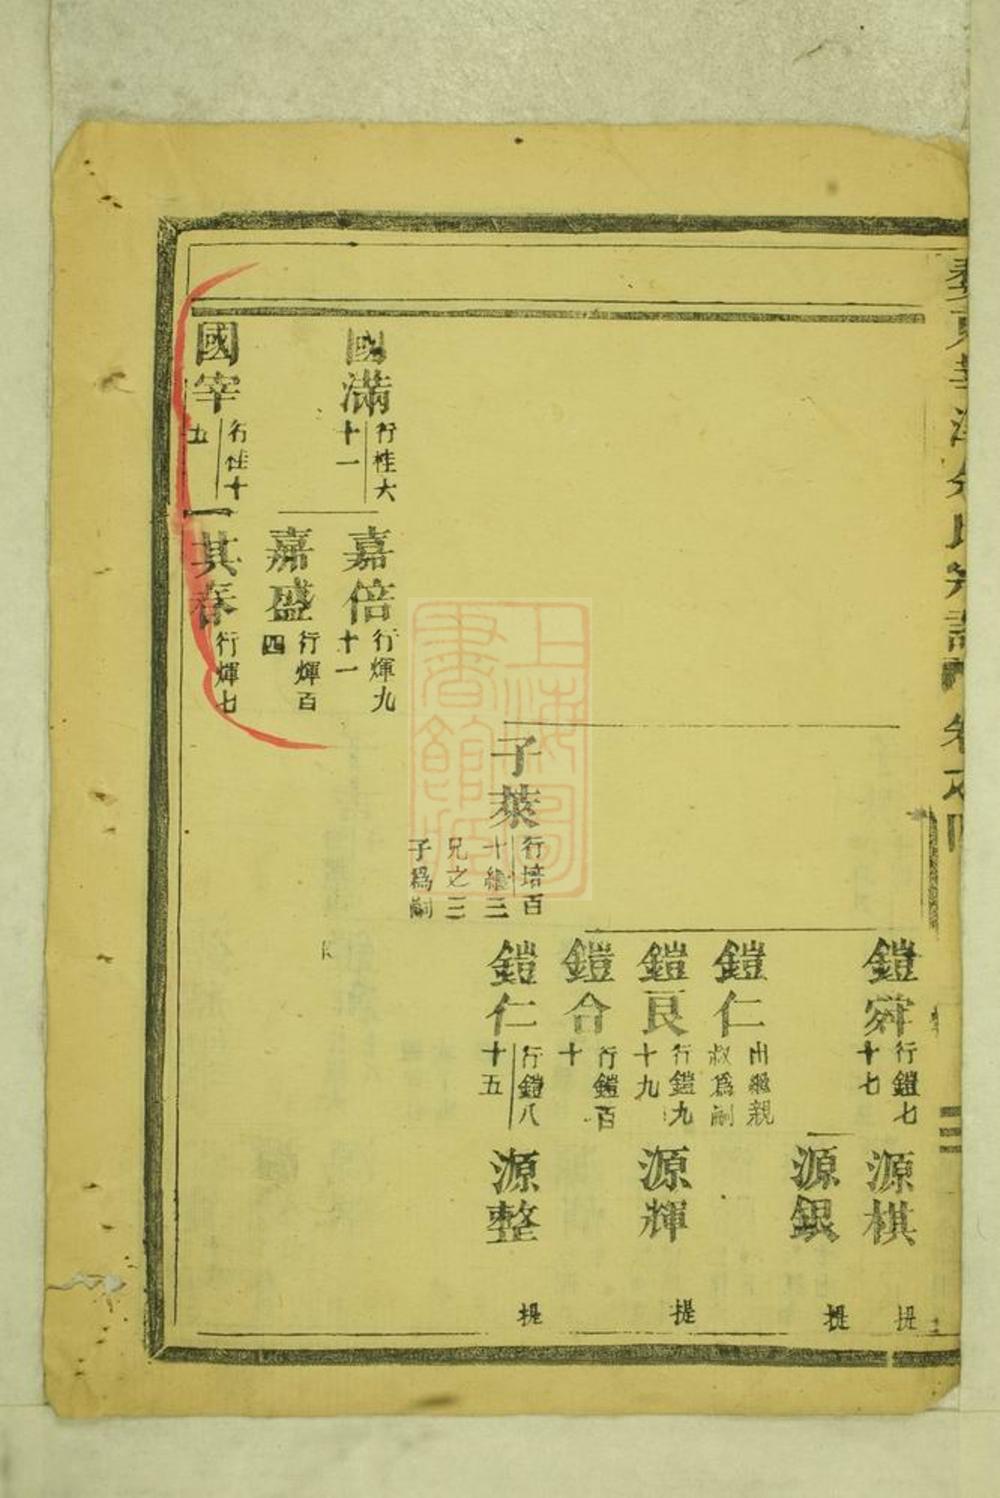 鎧舜
行鎧七
十七
源棋
提
源銀
提
鎧仁
出繼親
叔爲嗣
鎧良
行鎧九
十九
源輝
提
鎧合
行鎧百
十
子萊
行培百
十繼三
兄之三
子爲嗣
鎧仁
行鎧八
十五
源整
提
國滿
行桂六
十一
嘉倍
行煇九
十一
嘉盛
行煇百
四
國宰
行桂十
五
其春
行煇七
上海圖
書館藏